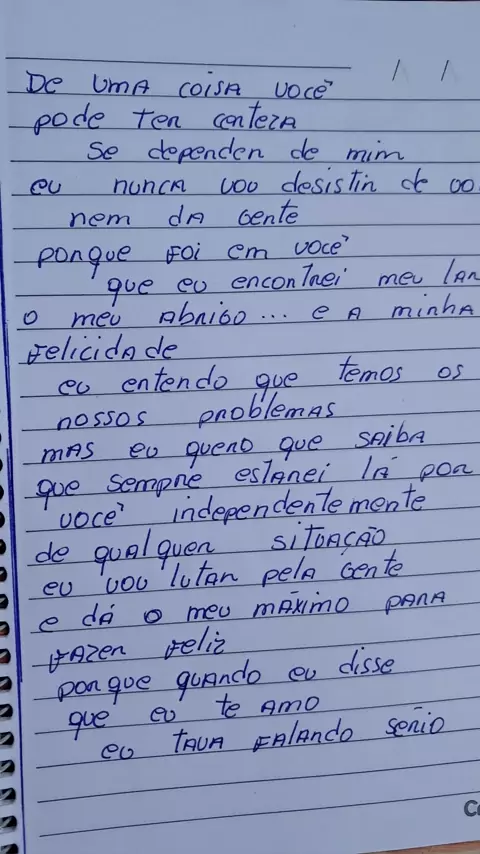 De uma coisa você
pode ter certeza
se depender de mim
eu nunca vou desistir de
nem da gente
porque foi em você
que eu encontrei meu lar
o meu abrigo... e a minha
felicidade
eu entendo que temos os
nossos problemas
mas eu quero que saiba
que sempre estarei lá por
você independentemente
de qualquer situação
eu vou lutar pela gente
e dá o meu máximo para
fazer feliz
porque quando eu disse
que eu te amo
eu tava falando sério